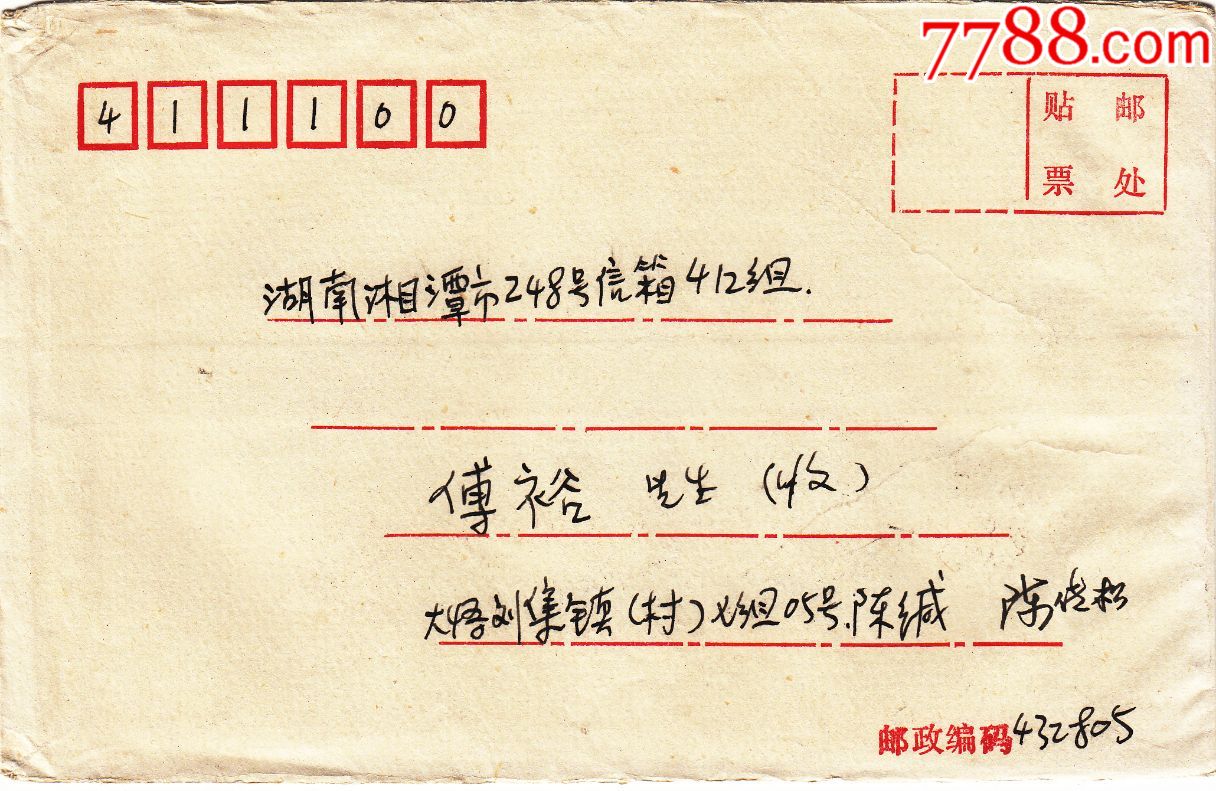 7788.com
411100
贴 邮
票 处
湖南湘潭市248号信箱412组.
傅裕 先生 (收)
大悟刘集镇(村)七组05号.陈缄 陈
邮政编码432805